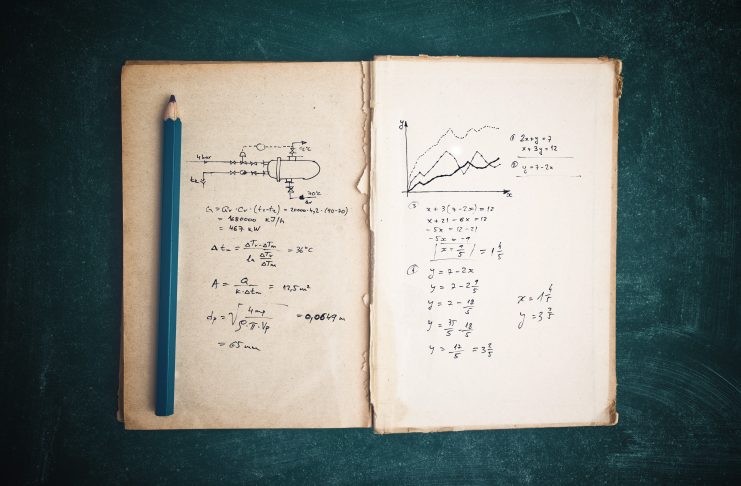 4 bar
70°C
G = Qv · Cv · (t2-t2) = 20000·4,2·(90-70)
= 1680000 kJ/h
= 467 kW
Δtm = ΔTv-ΔTm / ln ΔTv/ΔTm = 36°C
A = Q / k·Δtm = 12,5 m²
dp = √ 4mp / ρ·π·Vp = 0,0649 m
= 65 mm
y
x
① 2x+y = 7
x+3y = 12
② y = 7-2x
③ x+3(7-2x) = 12
x+21-6x = 12
-5x = 12-21
-5x = -9
x = 9/5 = 1 4/5
④ y = 7-2x
y = 7-2 9/5
y = 7 - 18/5
y = 35/5 - 18/5
y = 17/5 = 3 2/5
x = 1 4/5
y = 3 2/5